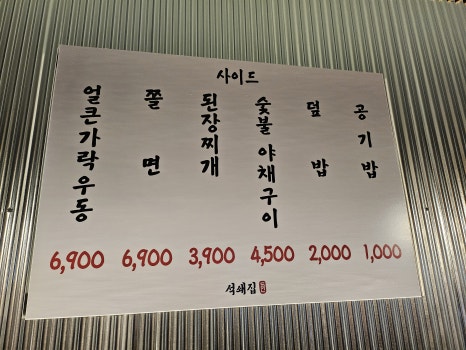 사이드
얼큰가락우동
쫄면
된장찌개
숯불 야채구이
덮밥
공기밥
6,900 6,900 3,900 4,500 2,000 1,000
석쇄집